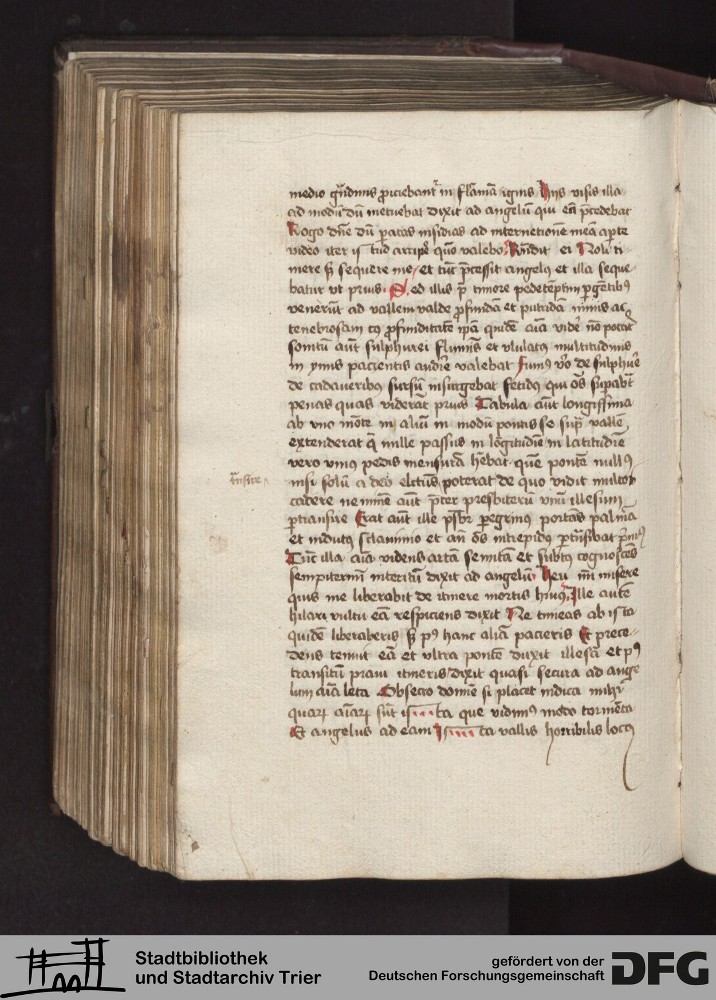 medio grandinis proiciebantur in flammam ignis Hiis visis illa
ad modum dum metuebat dixit ad angelum qui eam precedebat
Rogo domine dum paratas insidias ad internetionem meam aperte
video iter istud arripere quomodo valebo Respondit ei Noli ti
mere sed sequere me et tunc precessit angelus et illa seque
batur ut prius Sed illis pre timore pedetemptim pergentibus
venerunt ad vallem valde profundam et putridam nimis ac
tenebrosam cuius profunditatem ipsa quidem anima videre non poterat
sonitum autem sulphurei fluminis et ululatus multitudinis
in ymis pacientis audire valebat fumus vero de sulphure
de cadaveribus sursum insurgebat fetidus qui omnes superabat
penas quas viderat prius Tabula autem longissima
ab uno monte in alium in modum pontis se super vallem
extenderat que mille passus in longitudine in latitudine
vero unius pedis mensuram habebat quem pontem nullus
transire
nisi solum a deo electus poterat de quo vidit multos
cadere neminem autem preter presbiterum unum illesum
pertransire Erat autem ille presbiter peregrinus portans palmam
et indutus sclavinio et ante omnes intrepidus pertransibat primus
Tunc illa anima videns artam semitam et subtus cognoscens
sempiternum interitum dixit ad angelum Heu michi misere
quis me liberabit de itinere mortis huius Ille autem
hilari vultu eam respiciens dixit Ne timeas ab ista
quidem liberaberis sed post hanc aliam pacieris Et prece
dens tenuit eam et ultra pontem duxit illesam et post
transitum pravi itineris dixit quasi secura ad ange
lum anima leta Obsecro domine si placet indica michi
quarum animarum sunt ista que vidimus modo tormenta
Et angelus ad eam Ista vallis horribilis locus
Stadtbibliothek
und Stadtarchiv Trier
gefördert von der
Deutschen Forschungsgemeinschaft
DFG